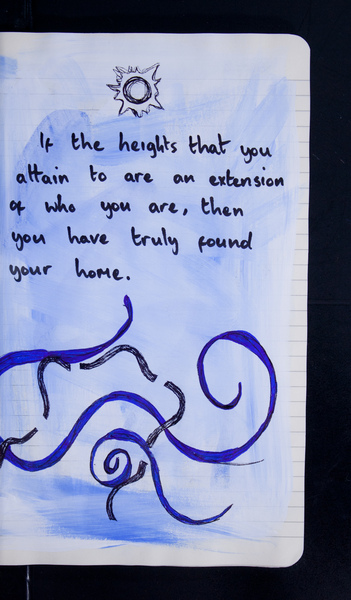 If the heights that you
attain to are an extension
of who you are, then
you have truly found
your home.